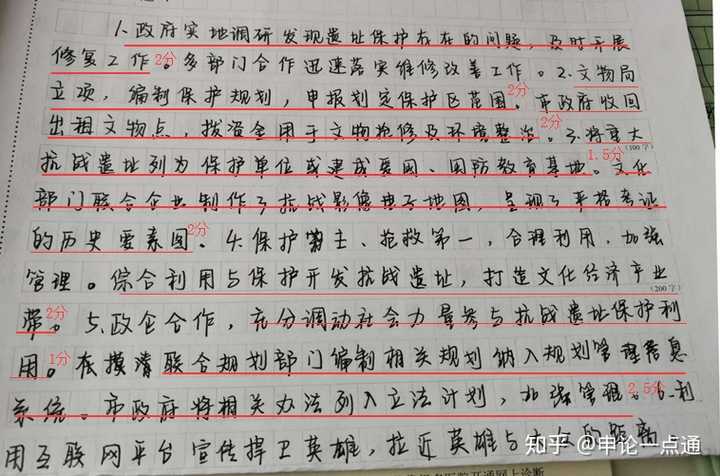 1.政府实地调研发现遗址保护存在的问题，及时开展
修复工作2分。多部门合作迅速落实维修改善工作。2.文物局
立项，编制保护规划，申报划定保护区范围2分。市政府收回
出租文物点，拨资金用于文物抢修及环境整治2分。3.将重大
1.5分（100字）
抗战遗址列为保护单位或建成爱国、国防教育基地。文化
部门联合企业制作了抗战影像电子地图，呈现了严格考证
的历史要素图2分。4.保护为主、抢救第一，合理利用，加强
管理。综合利用与保护开发抗战遗址，打造文化经济产业
（200字）
带2分。5.政企合作，充分调动社会力量参与抗战遗址保护利
用1分。在摸清联合规划部门编制相关规划纳入规划管理信息
系统。市政府将相关办法列入立法计划，加强管理2.5分。6.利
用互联网平台宣传捍卫英雄，拉近英雄与
知乎 @申论一点通